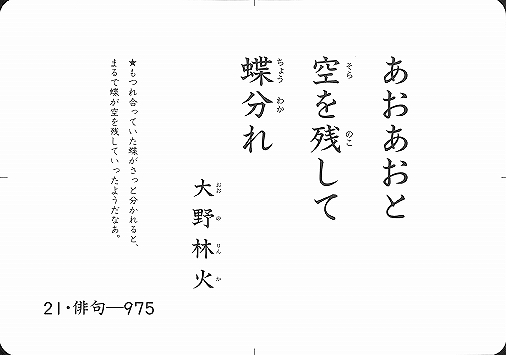 あおあおと
空を残して
蝶分れ
大野林火
★もつれ合っていた蝶がさっと分かれると、
まるで蝶が空を残していったようだなあ。
21・俳句―975